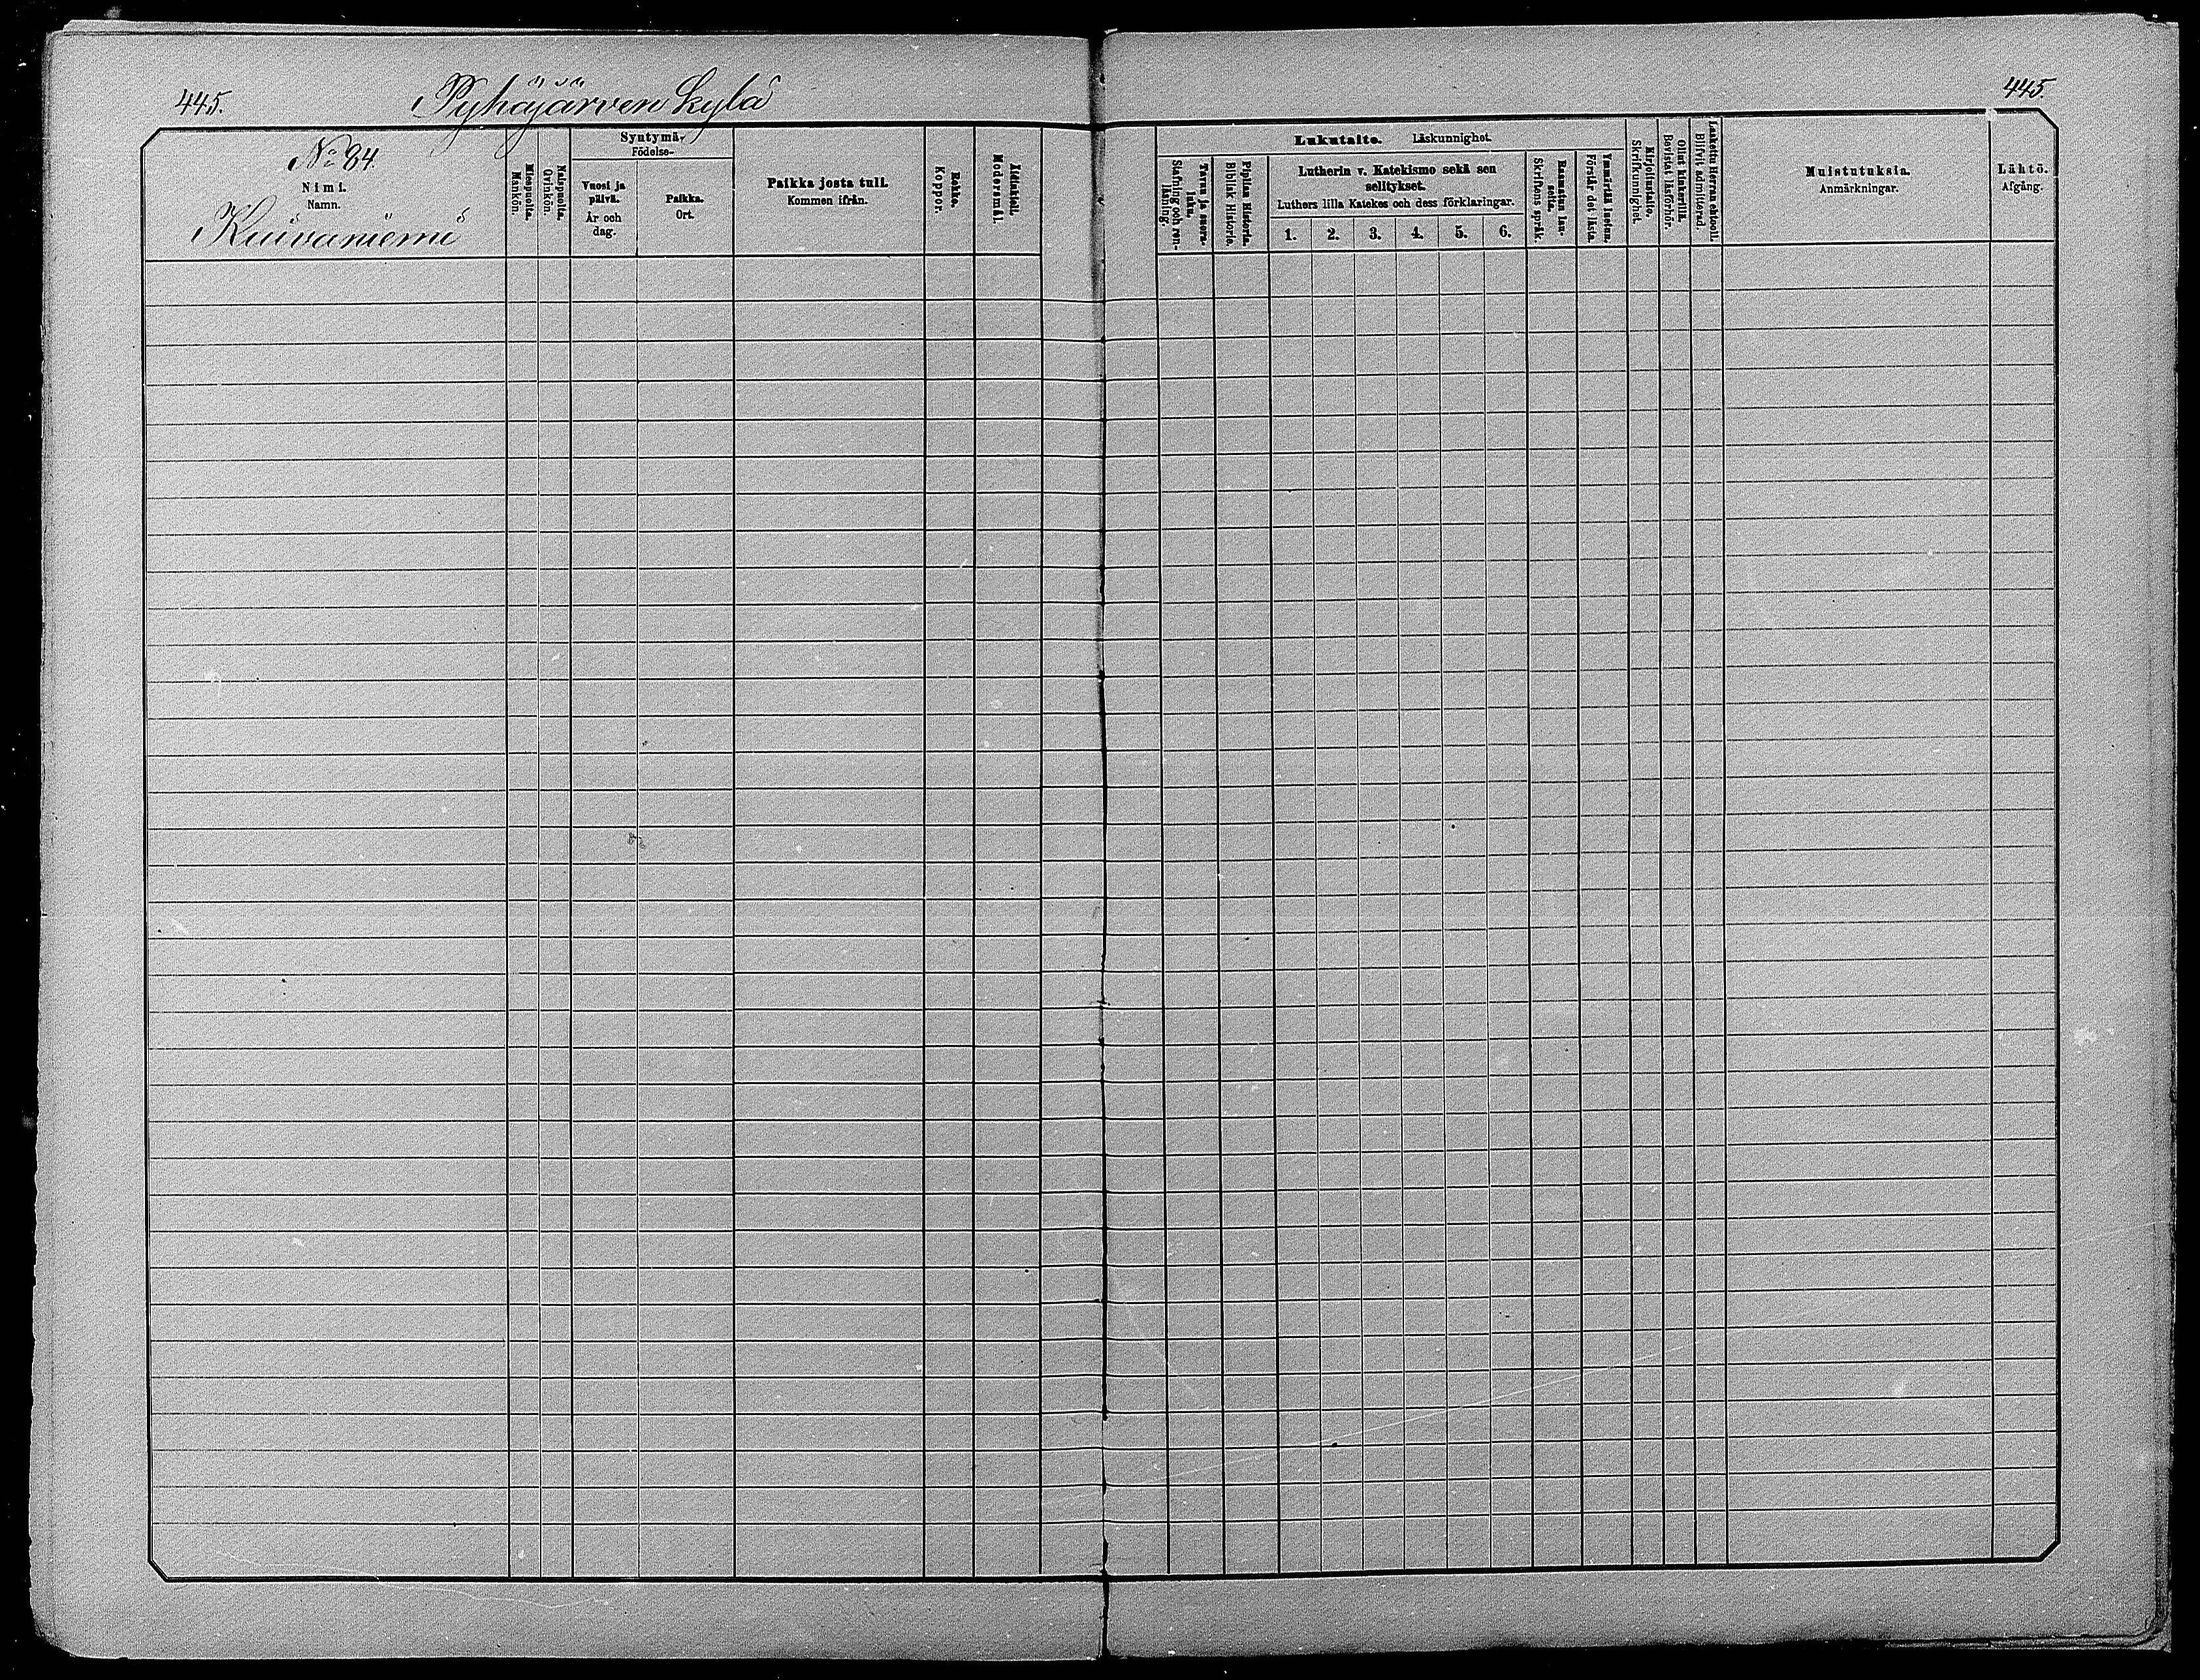 445.
Pyhäjärven kylä
445.
No 84.
Nimi.
Namn.
Kuivaniemi
Miespuolia.
Mankön.
Naispuolia.
Qvinkön.
Syntymä-
Födelse-
Vuosi ja
päivä.
År och
dag.
Paikka.
Ort.
Paikka josta tuli.
Kommen ifrån.
Rokko.
Koppor.
Äidinkieli.
Modersmål.
Lukutaito. Läskunnighet.
Tavuu ja suora-
luku.
Stafning och ren-
läsning.
Piplian Historia.
Biblisk Historie.
Lutherin v. Katekismo sekä sen
selitykset.
Luthers lilla Katekes och dess förklaringar.
1. 2. 3. 4. 5. 6.
Raamatun lau-
seita.
Skriftens språk.
Ymmärtää luetun.
Förstår det lästa.
Kirjoitustaito.
Skrifkunnighet.
Ollut kinkerillä.
Bevistat läsförhör.
Laskettu Herran ehtooll.
Blifvit admitterad.
Muistutuksia.
Anmärkningar.
Lähtö.
Afgång.